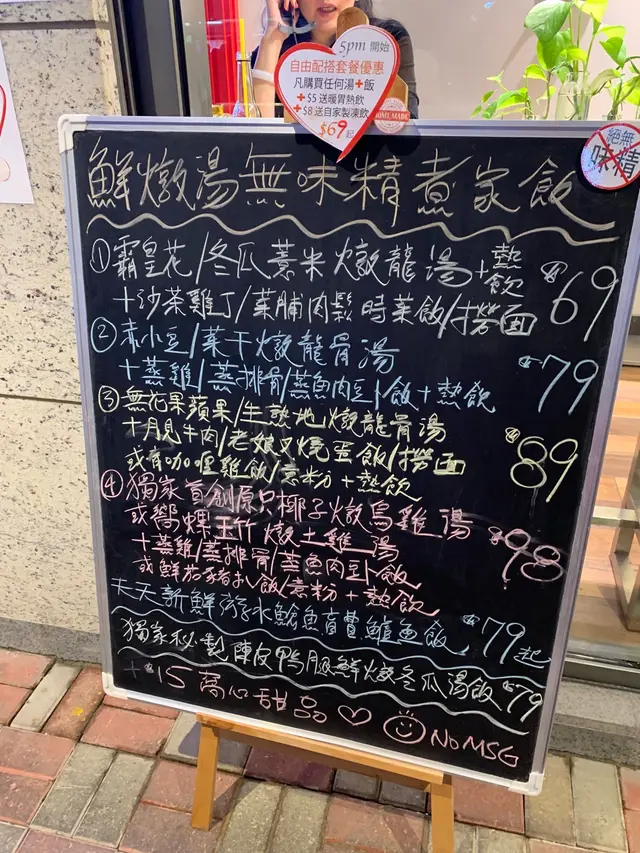 5pm 開始
自由配搭套餐優惠
凡購買任何湯+飯
+$5送暖胃熱飲
+$8送自家製凍飲
$69起
HOME MADE
絕無
味精
鮮燉湯無味精煮家飯
① 霸皇花/冬瓜薏米燉龍湯+熱飲 $69
+沙茶雞丁/菜脯肉鬆時菜飯/撈面
② 赤小豆/菜干燉龍骨湯
+蒸雞/蒸排骨/蒸魚肉卜飯+熱飲 $79
③ 無花果蘋果/生熟地燉龍骨湯
+月見牛肉/老娘叉燒蛋飯/撈面 $89
或有咖喱雞飯/意粉+熱飲
④ 獨家首創原只椰子燉烏雞湯
或響螺玉竹燉土雞湯 $98
+蒸雞/蒸排骨/蒸魚肉卜飯
或鮮茄豬扒飯/意粉+熱飲
天天新鮮游水鯰魚 鱸魚飯 $79起
獨家秘製陳皮鴨腿鮮燉冬瓜湯飯 $79
+$15 窩心甜品 ♡ NO MSG